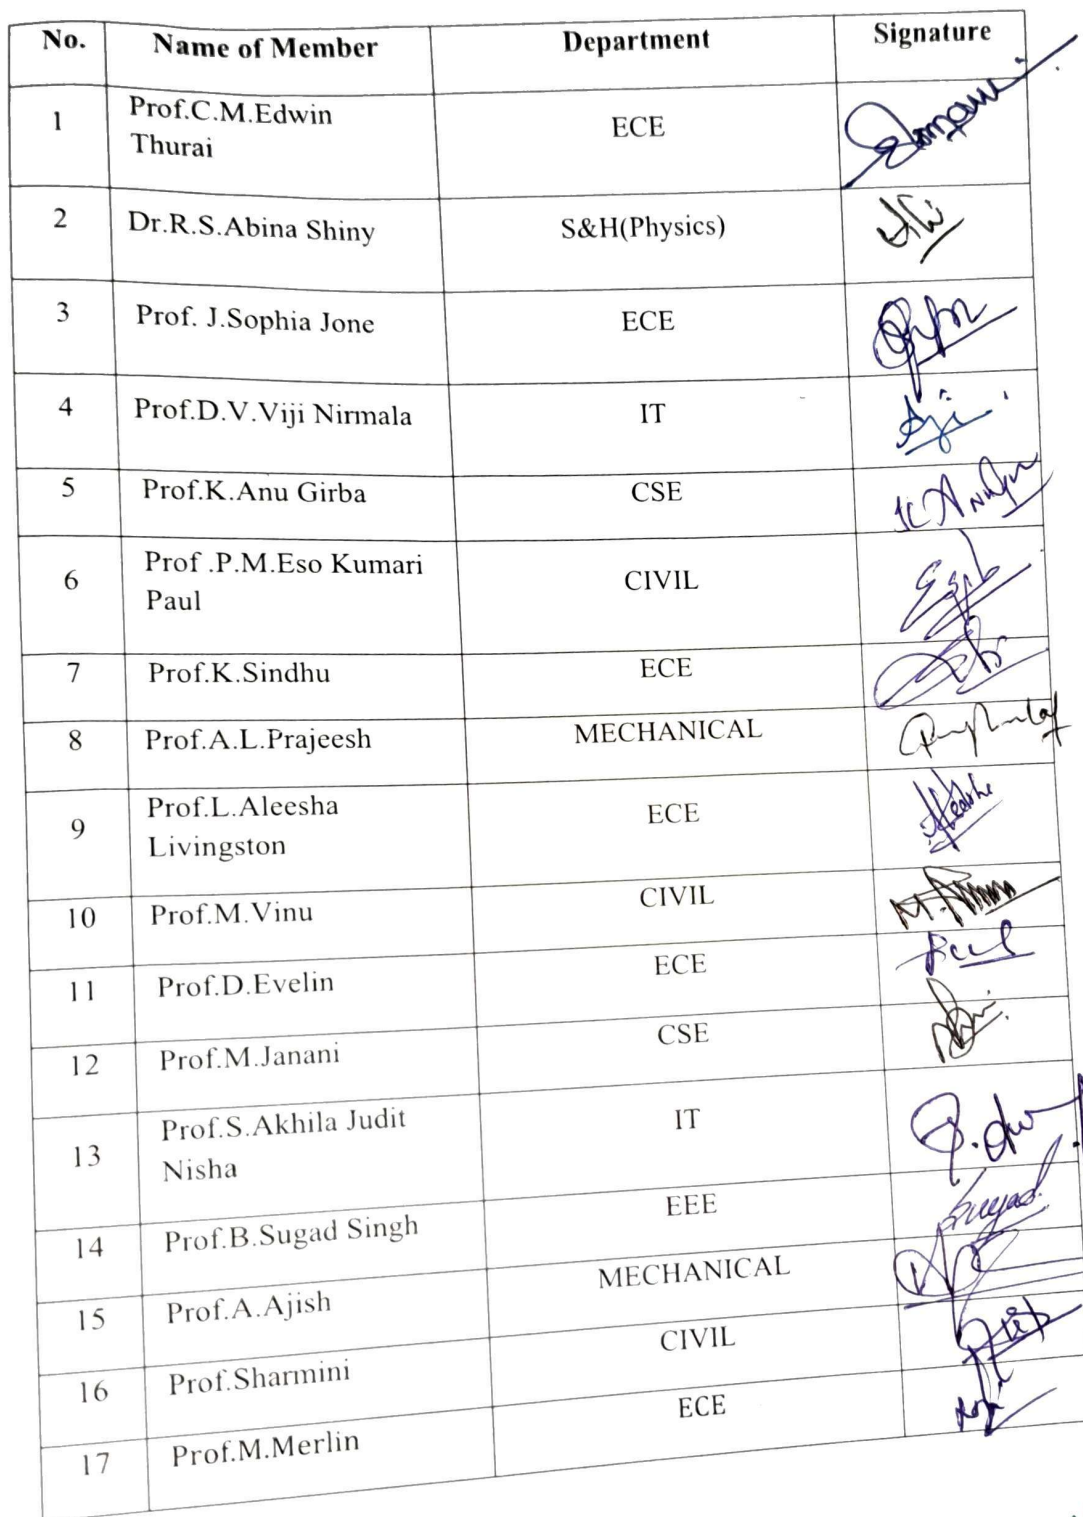 No. Name of Member Department Signature
1 Prof.C.M.Edwin ECE
Thurai
2 Dr.R.S.Abina Shiny S&H(Physics)
3 Prof. J.Sophia Jone ECE
4 Prof.D.V.Viji Nirmala IT
5 Prof.K.Anu Girba CSE
6 Prof .P.M.Eso Kumari CIVIL
Paul
7 Prof.K.Sindhu ECE
8 Prof.A.L.Prajeesh MECHANICAL
9 Prof.L.Aleesha ECE
Livingston
10 Prof.M.Vinu CIVIL
11 Prof.D.Evelin ECE
12 Prof.M.Janani CSE
13 Prof.S.Akhila Judit IT
Nisha
14 Prof.B.Sugad Singh EEE
15 Prof.A.Ajish MECHANICAL
16 Prof.Sharmini CIVIL
17 Prof.M.Merlin ECE